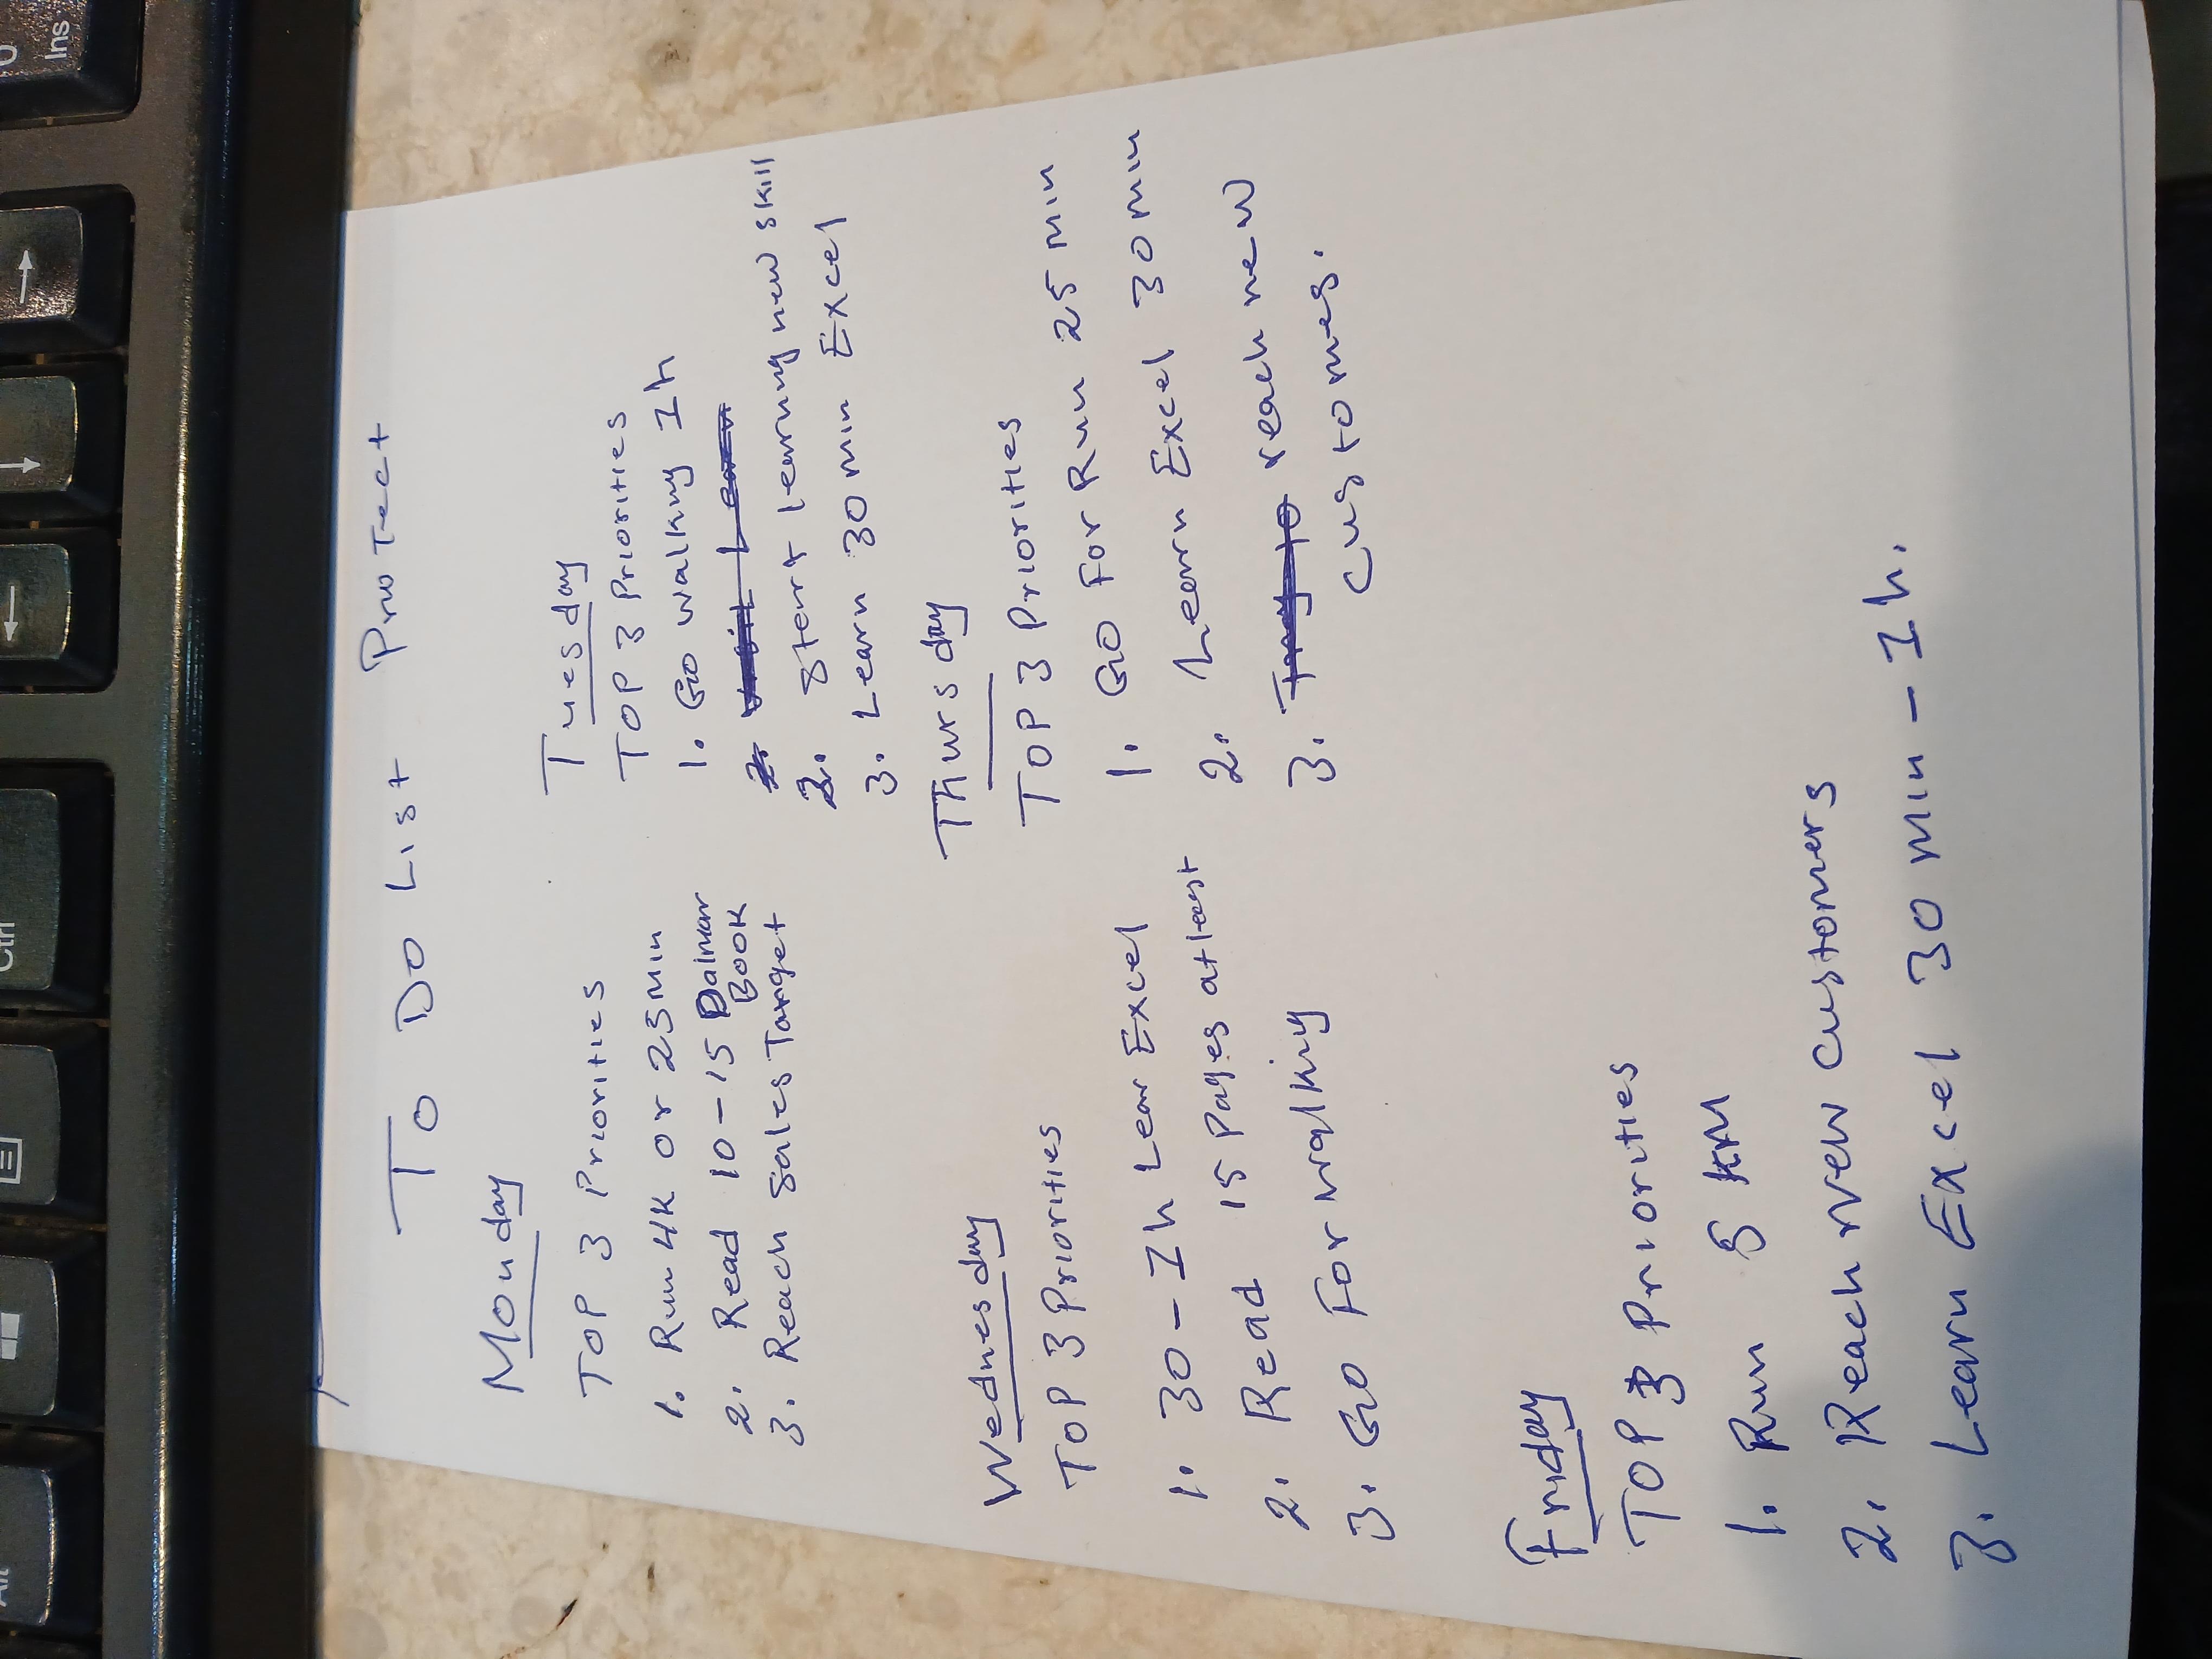 To Do List ProTect
Monday
TOP 3 Priorities
1. Run 4K or 25 Min
2. Read 10-15 Dalmar
Book
3. Reach Sales Target
Tuesday
TOP 3 Priorities
1. Go walking 1h
2. Start learning new skill
3. Learn 30 min Excel
Wednesday
TOP 3 Priorities
1. 30-1h Lear Excel
2. Read 15 Pages atleast
3. GO For walking
Thursday
TOP 3 Priorities
1. GO For Run 25 min
2. Learn Excel 30 min
3. reach new
customes.
Friday
TOP 3 Priorities
1. Run 5 KM
2. Reach new customers
3. Learn Excel 30 min - 1h.
Ins
Ctrl
Alt